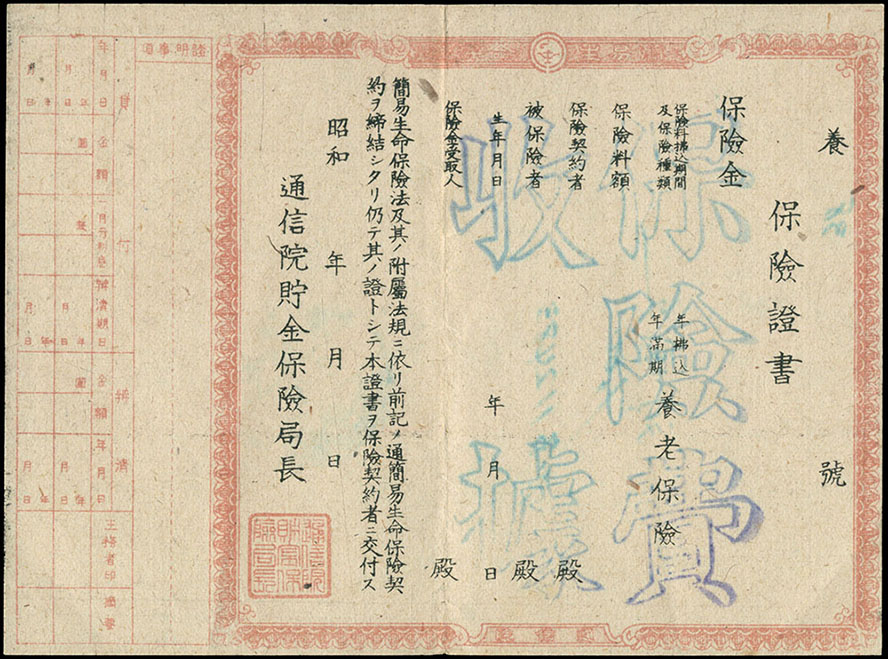 養 號
保險證書
保險金
保險料拂込期間
及保險種類
年拂込
年滿期
養老保險
保險料額
保險契約者 殿
被保險者 殿
生年月日 年 月 日
保險金受取人 殿
簡易生命保險法及其ノ附屬法規ニ依リ前記ノ通簡易生命保險契
約ヲ締結シタリ仍テ其ノ證トシテ本證書ヲ保險契約者ニ交付ス
昭和 年 月 日
通信院貯金保險局長
保險費
收據
證明事項
貸付
年月日
金額
辨濟期日
辨濟
金額
年月日
主務者印
摘要